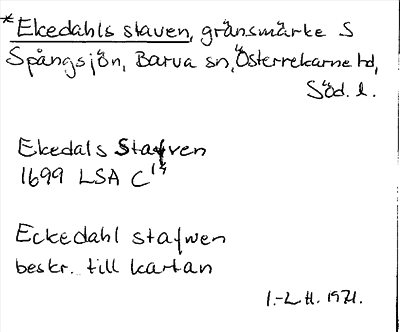 *Ekedahls staven, gränsmärke S
Spångsjön, Barva sn, Österrekarne hd,
Söd. l.
Ekedals Stafven
1699 LSA C¹⁴
Eckedahl stafwen
beskr. till kartan
I.-L H. 1971.